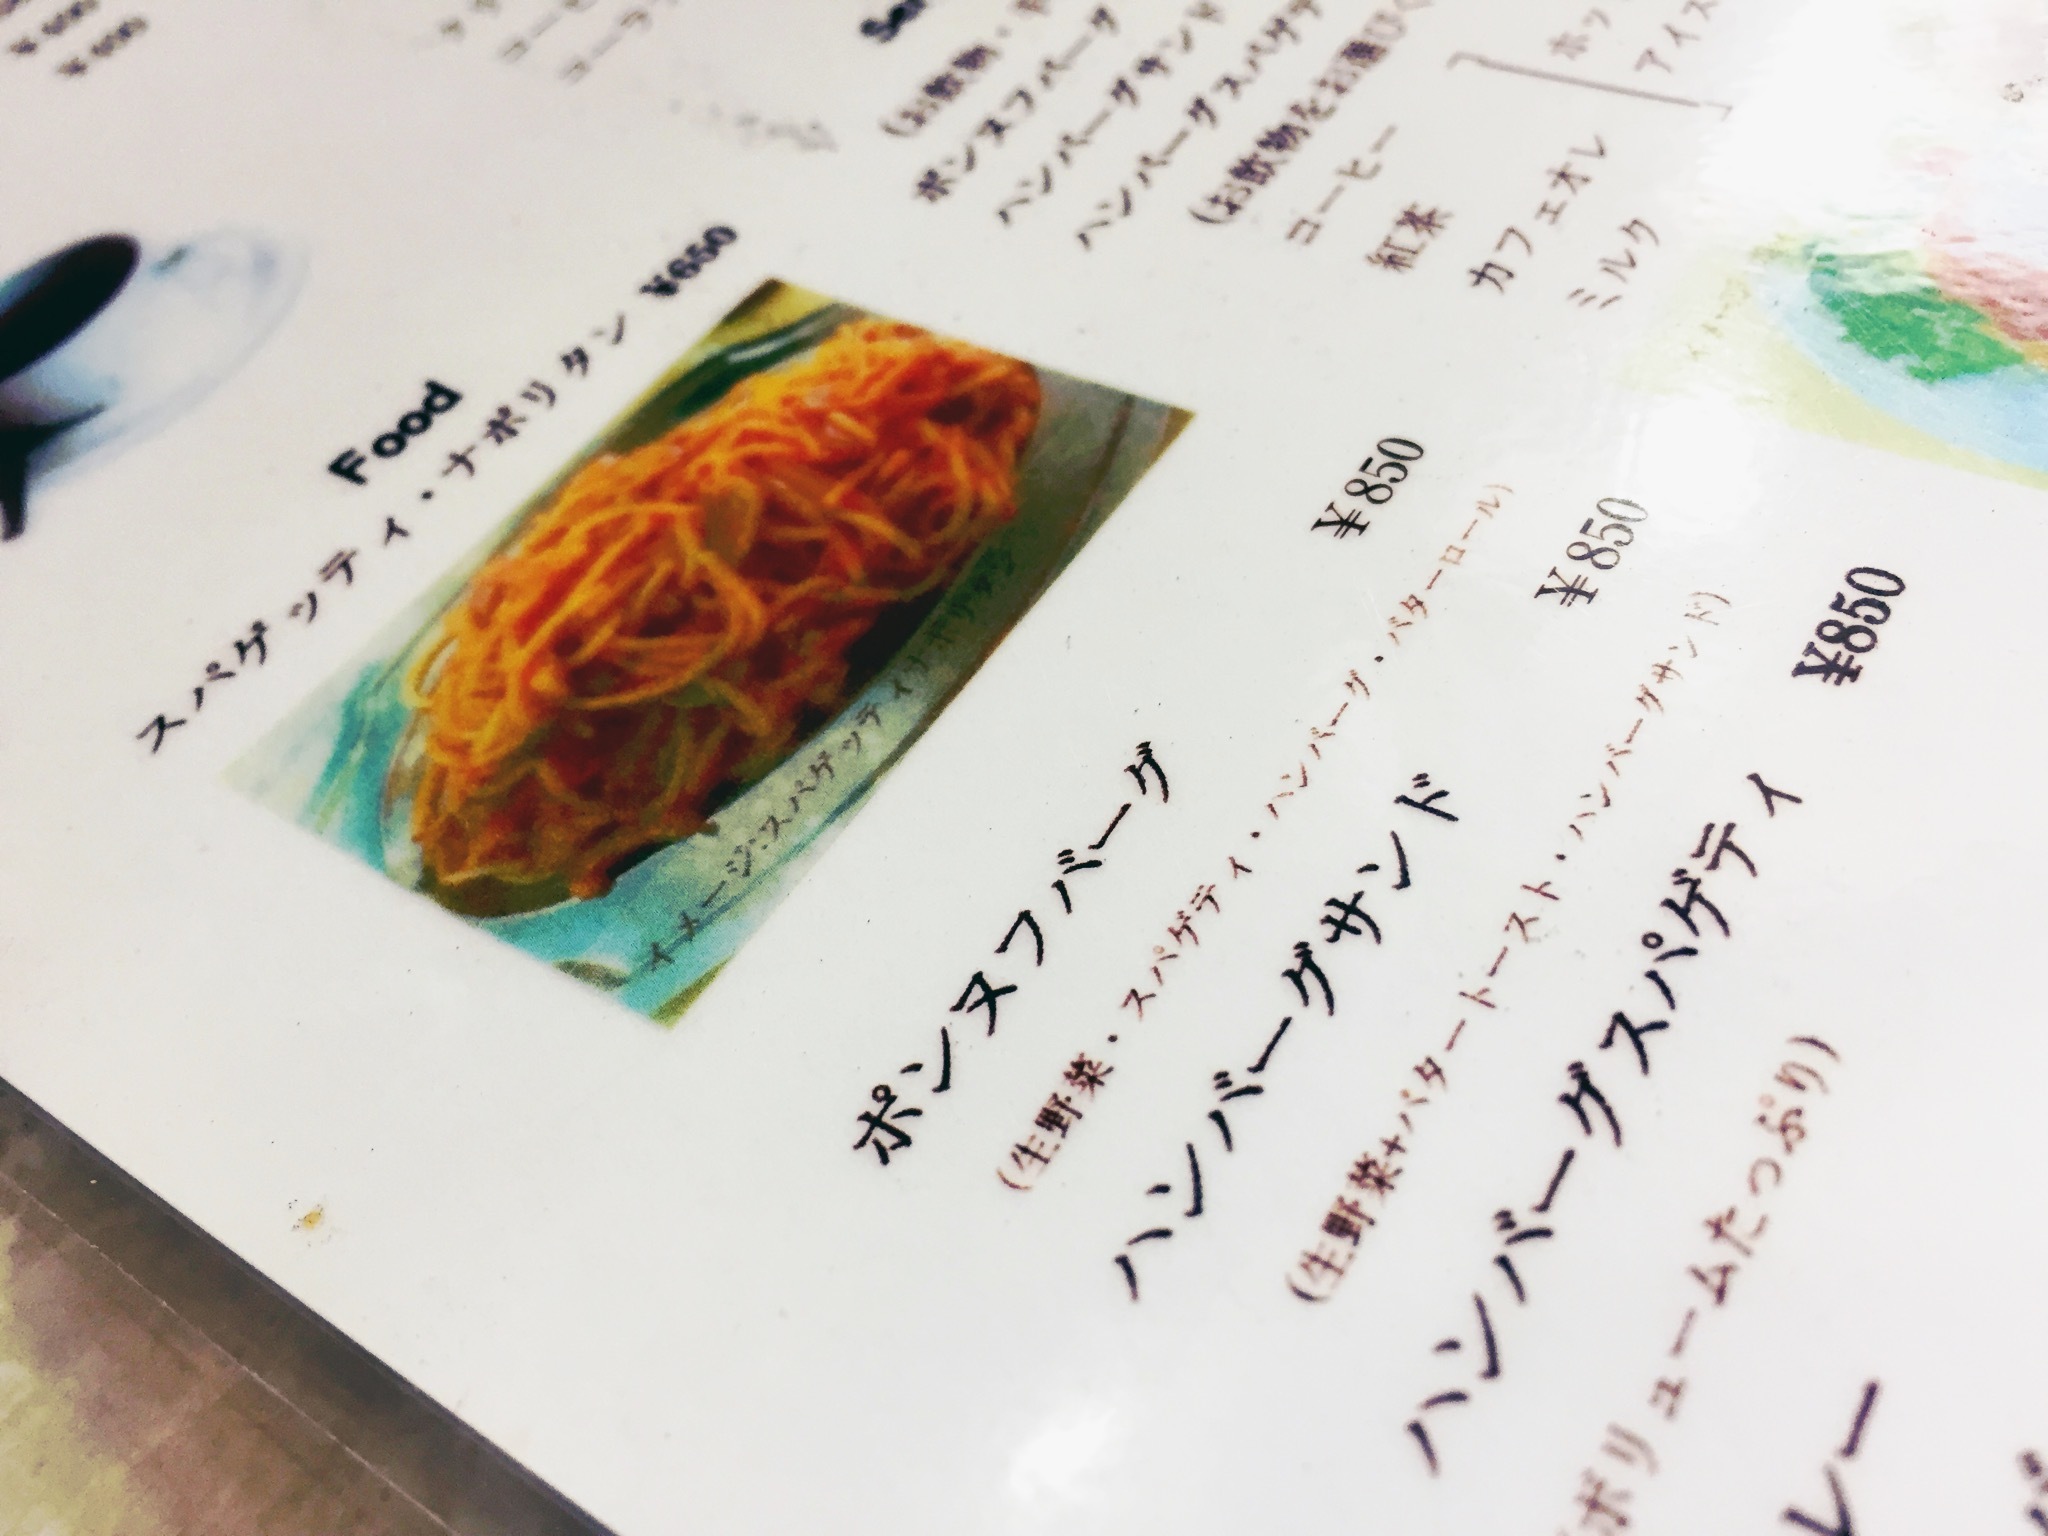 ¥400
コーヒー
(お飲物・
ポンヌフバーグ
ハンバーグサンド
ハンバーグスパゲテ
(お飲物をお選び
コーヒー
紅茶
カフェオレ
ミルク
ホッ
アイス
Food
スパゲッティ・ナポリタン ¥650
イメージ:スパゲッティ・ナポリタン
ポンヌフバーグ ¥850
(生野菜・スパゲティ・ハンバーグ・バターロール)
ハンバーグサンド ¥850
(生野菜+バタートースト・ハンバーグサンド)
ハンバーグスパゲティ ¥850
ボリュームたっぷり)
レー